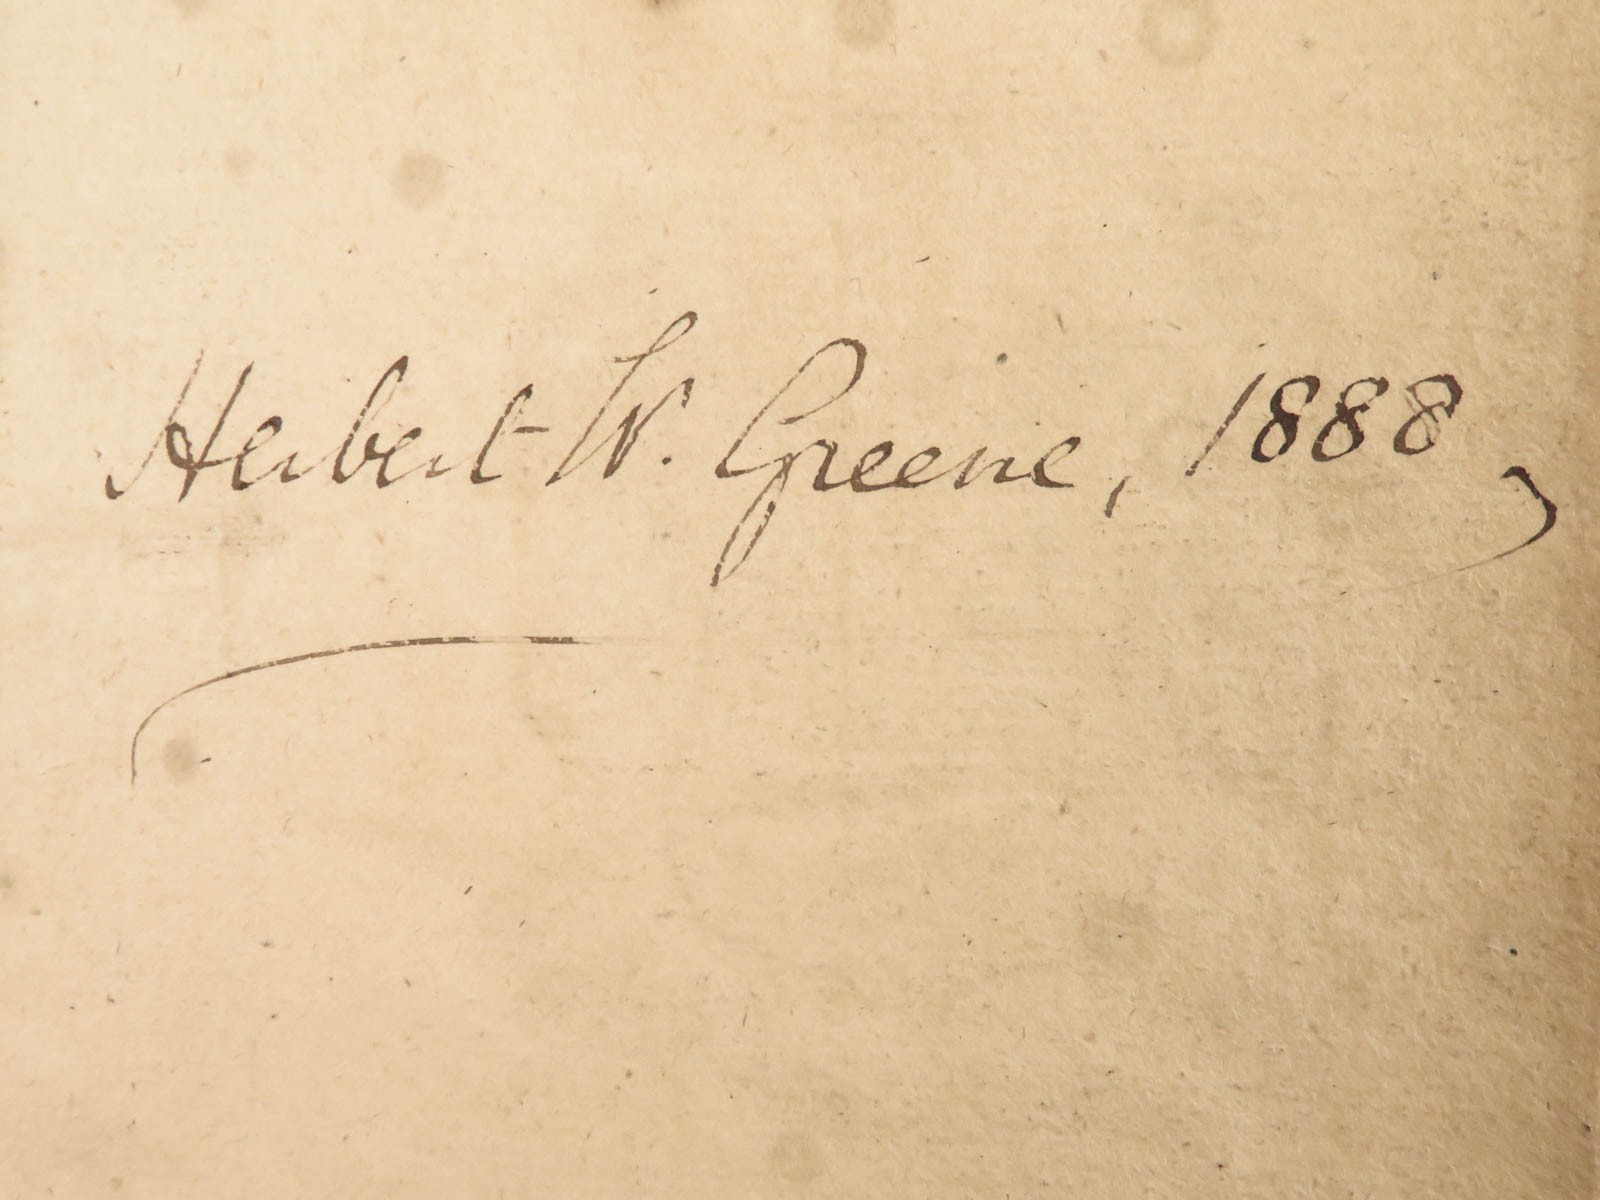 Herbert W. Greene, 1888